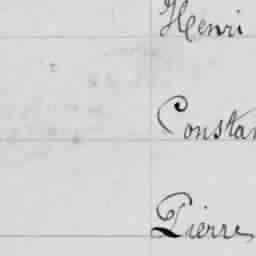 Henri
Constan
Pierre